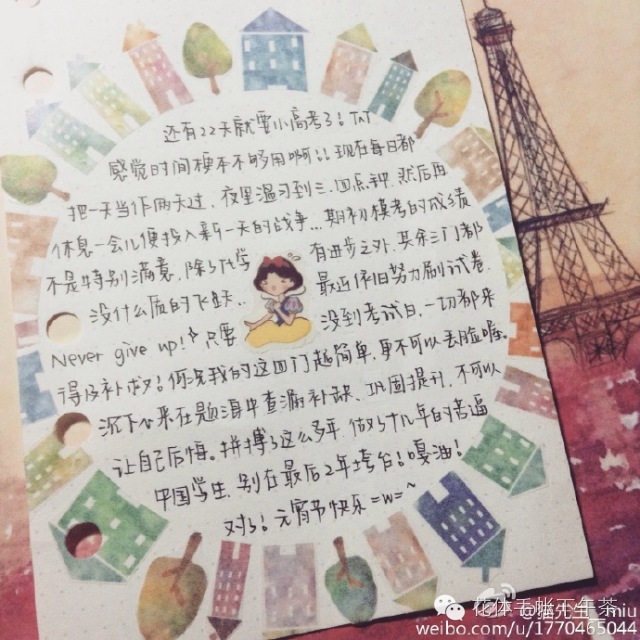 还有22天就要小高考了！TAT
感觉时间根本不够用啊！！现在每日都
把一天当作两天过，夜里温习到三、四点钟，然后再
休息一会儿便投入新一天的战争…期初模考的成绩
不是特别满意，除了化学 有进步之外，其余三门都
没什么质的飞跃… 最近依旧努力刷试卷，
Never give up！只要 没到考试日，一切都来
得及补救！何况我的这四门超简单，更不可以丢脸喔。
沉下心来在题海中查漏补缺、巩固提升，不可以
让自己后悔。拼搏了这么多年，做了十几年的普通
中国学生，别在最后2年垮台！嘎油！
对了！元宵节快乐=w=~
weibo.com/u/1770465044